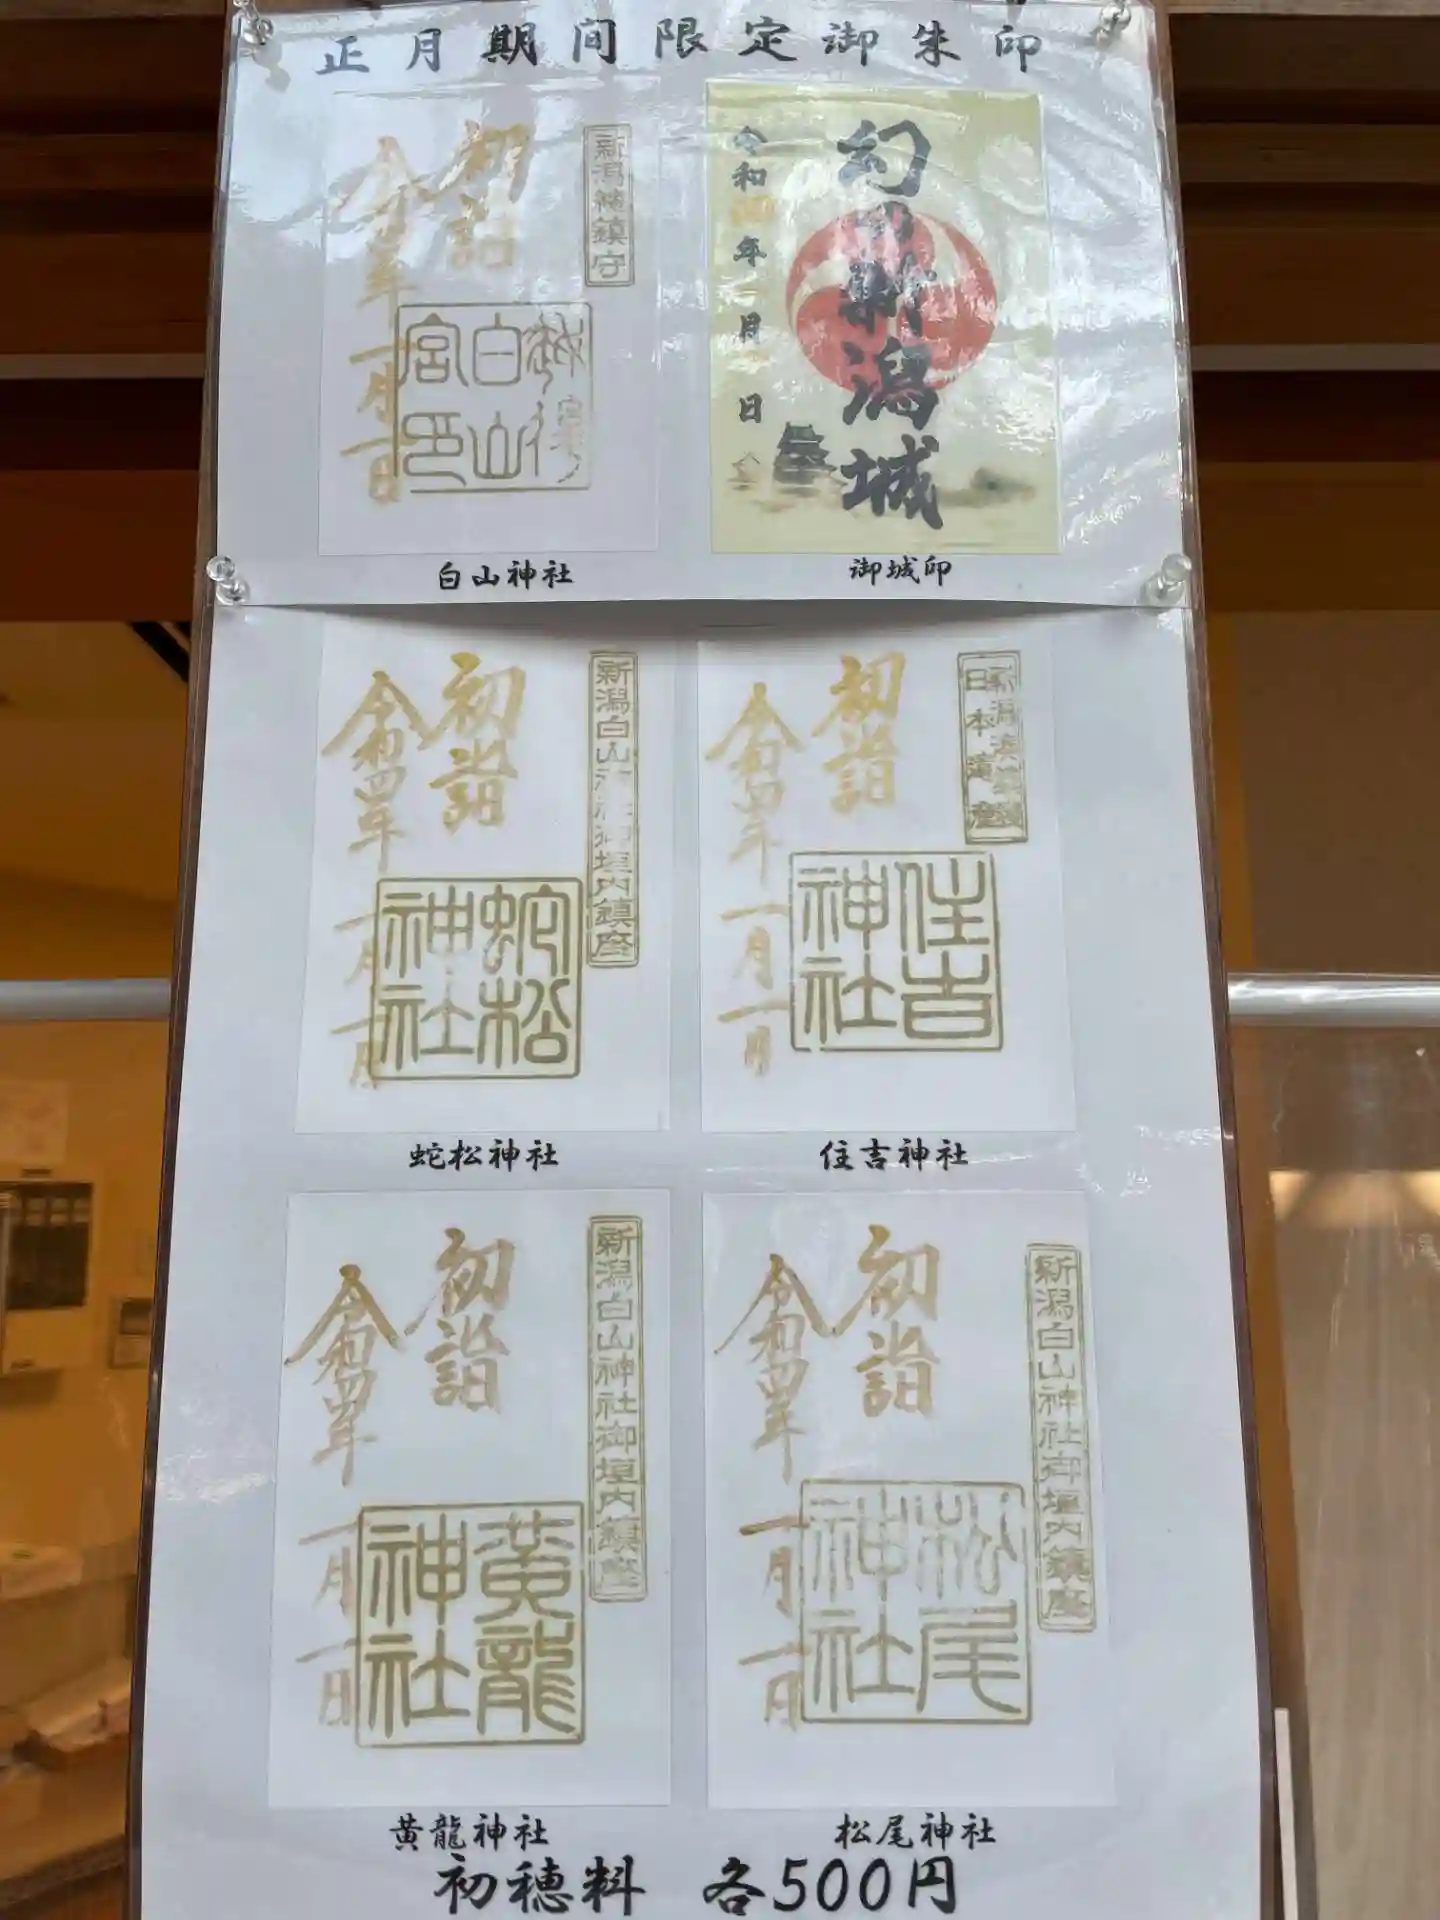 正月期間限定御朱印
新潟総鎮守
初詣
令和四年
一月一日
白山
宮印
白山神社
幻の新潟城
令和四年一月一日
御城印
新潟白山神社御垣内鎮座
初詣
令和四年
一月一日
蛇松
神社
蛇松神社
日本
初詣
令和四年
一月一日
住吉
神社
住吉神社
新潟白山神社御垣内鎮座
初詣
令和四年
一月一日
黄龍
神社
黄龍神社
新潟白山神社御垣内鎮座
初詣
令和四年
一月一日
松尾
神社
松尾神社
初穂料 各500円